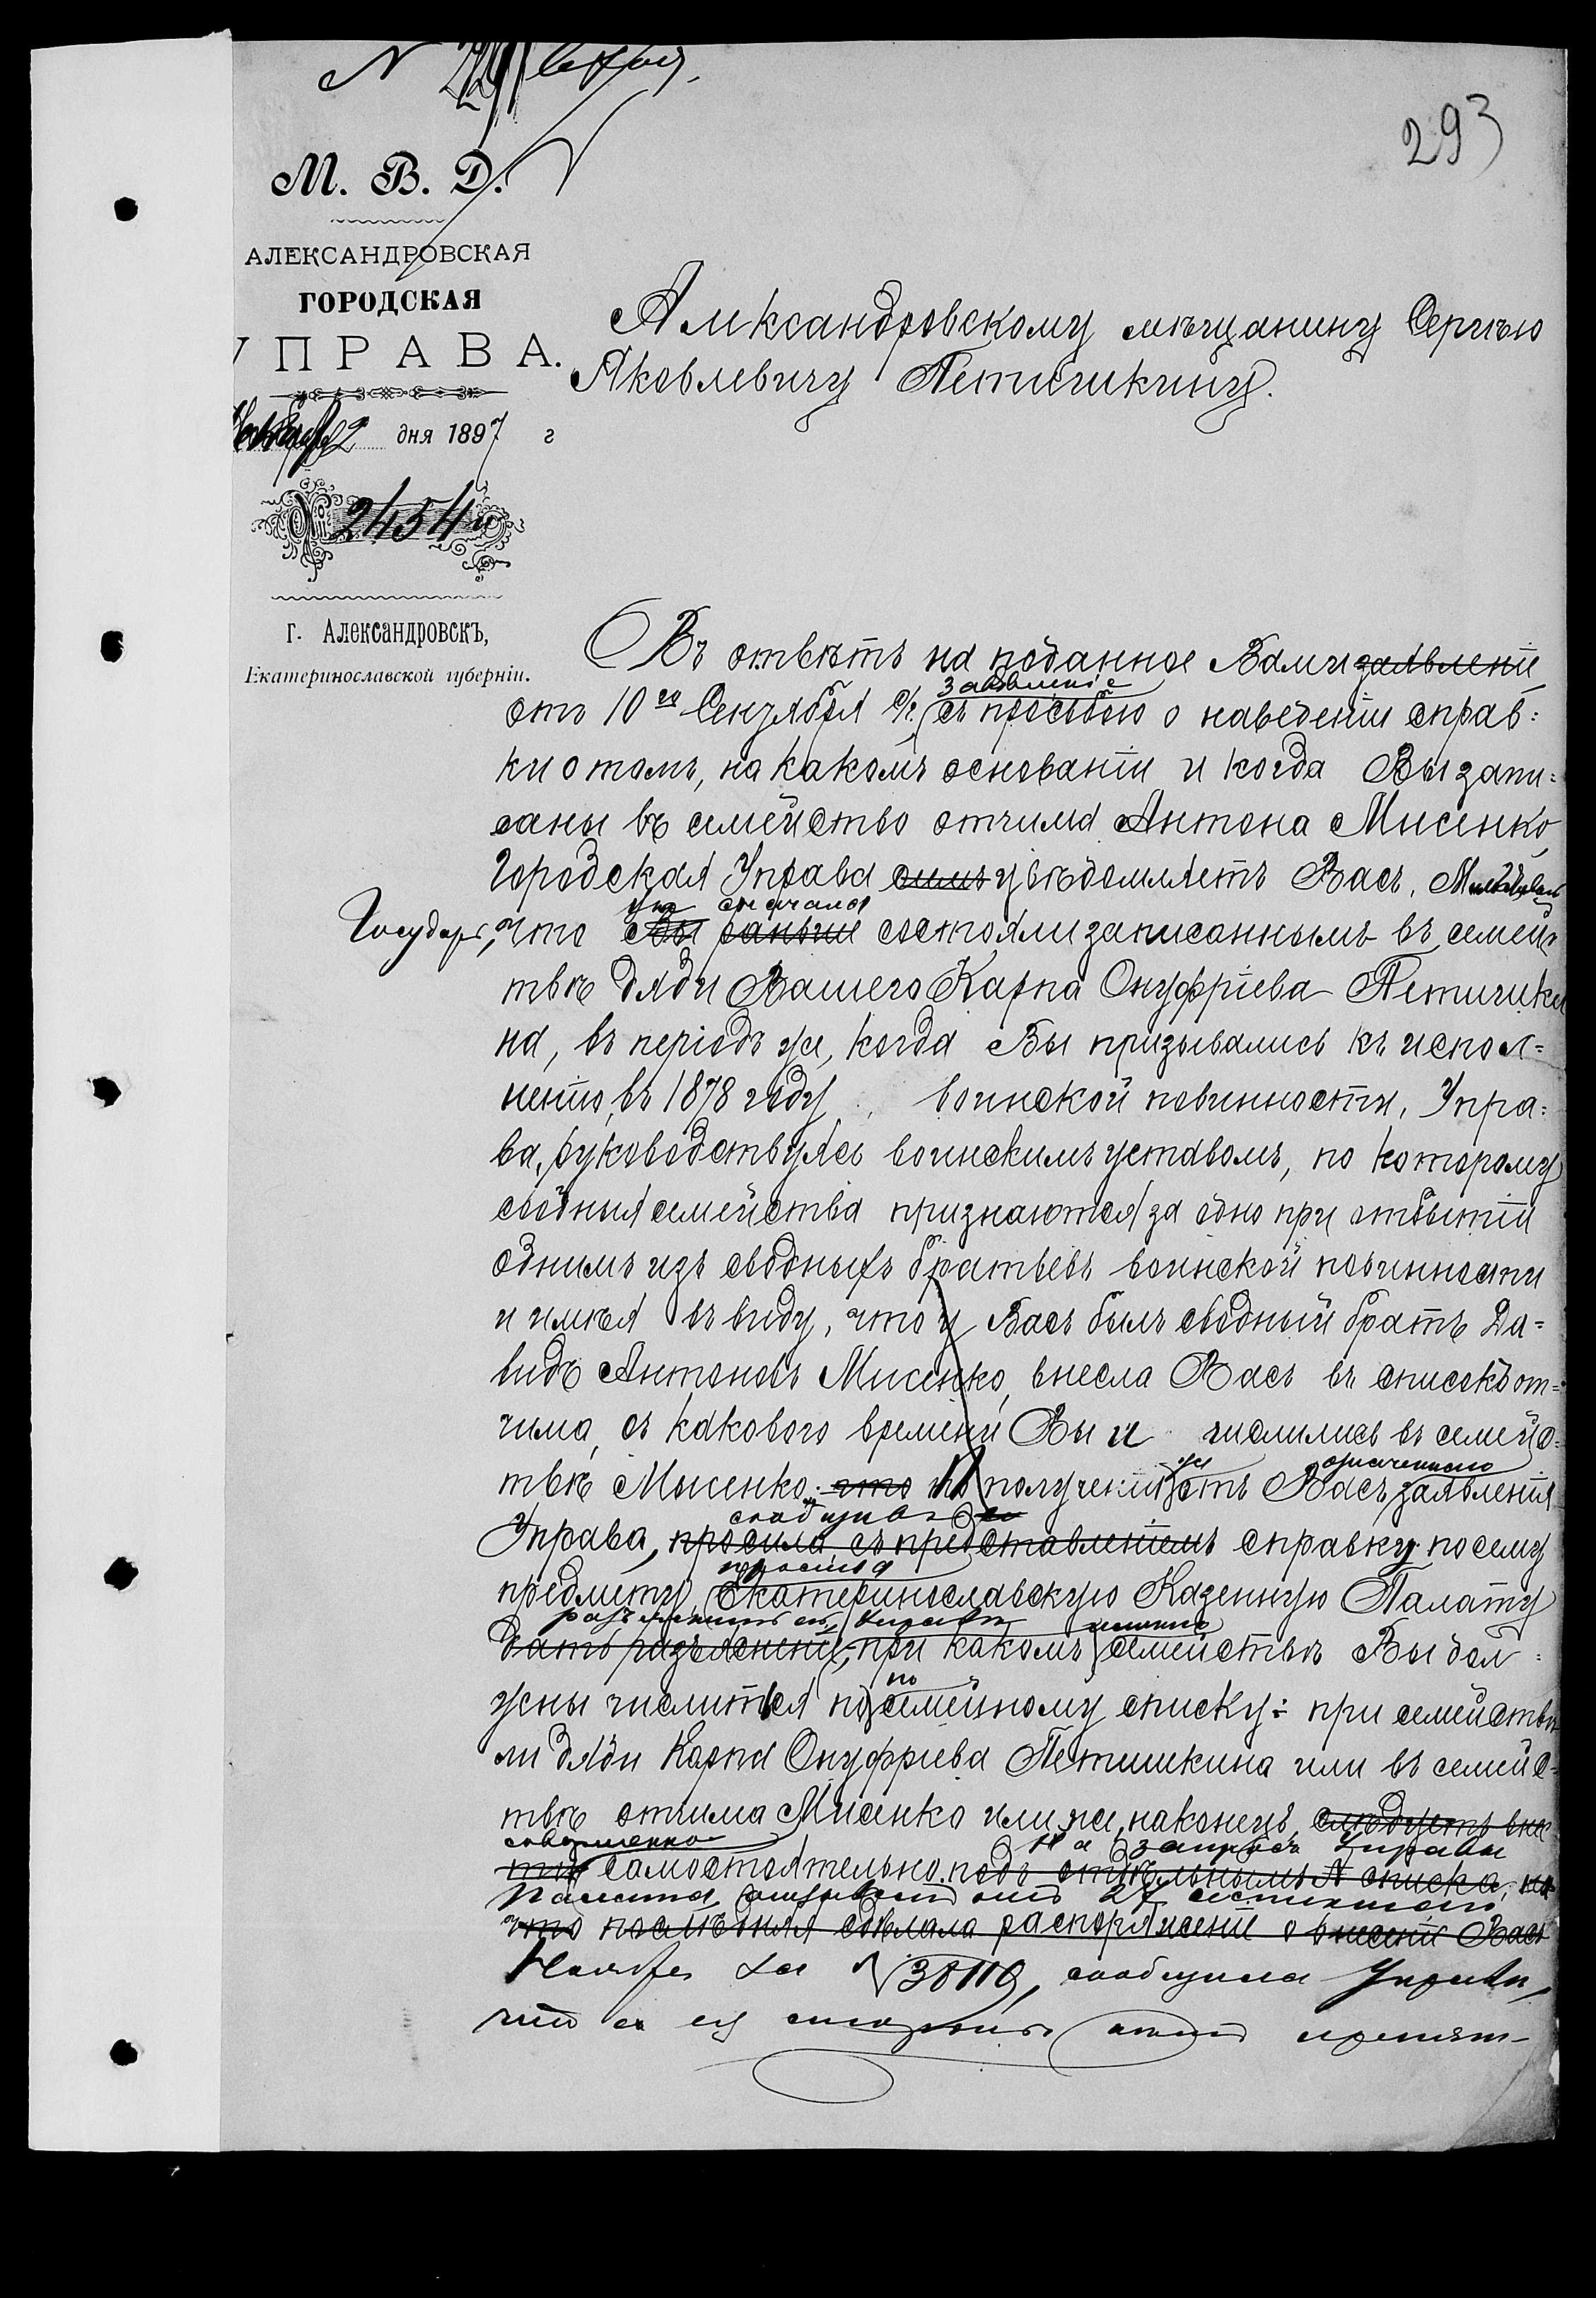 293
М. В. Д.
АЛЕКСАНДРОВСКАЯ
ГОРОДСКАЯ
УПРАВА.
2 дня 1897 г
№ 2454
г. Александровскъ,
Екатеринославской губерніи.
Александровскому мѣщанину Сергѣю
Яковлевичу Петичкину.
Въ отвѣтъ на поданное Вами заявленіе
заявленіе
отъ 10го Сентября с/г. съ просьбою о наведеніи справ=
ки о томъ, на какомъ основаніи и когда Вы запи=
саны въ семейство отчима Антона Мисенко,
Городская Управа симъ увѣдомляетъ Васъ, Милостивый
сначала
Государь, что Вы раньше состояли записаннымъ въ семейс
твѣ дяди Вашего Карпа Онуфріева Петички
на, въ періодъ же, когда Вы призывались къ испол=
ненію, въ 1878 году воинской повинности, Упра=
ва, руководствуясь воинскимъ уставомъ, по которому
сводныя семейства признаются за одно при отбытіи
однимъ изъ сводныхъ братьевъ воинской повинности
и имѣя въ виду, что у Васъ былъ сводный братъ Да=
видъ Антоновъ Мисенко, внесла Васъ въ списокъ от=
чима, съ какового времени Вы и числились въ семейс=
же означеннаго
твѣ Мисенко. что По полученіи отъ Васъ заявленія
сообщивъ
Управа, просила съ представленіемъ справку по сему
просила
предмету, Екатеринославскую Казенную Палату
разъяснить Управѣ именно
дать разъясненіе, при какомъ семействѣ Вы дол=
по
жены числиться по семейному списку: при семействѣ
ли дяди Карпа Онуфріева Петичкина или въ семейс=
твѣ отчима Мисенко или же, наконецъ, слѣдуетъ вне
совершенно На запросъ Управы
сти самостоятельно. подъ отдѣльнымъ № списка,
Палата, отъ 27
что послѣдняя сдѣлала распоряженіе о внесеніи Васъ
Ноября за № 38119, сообщила Управѣ,
что съ ея стороны